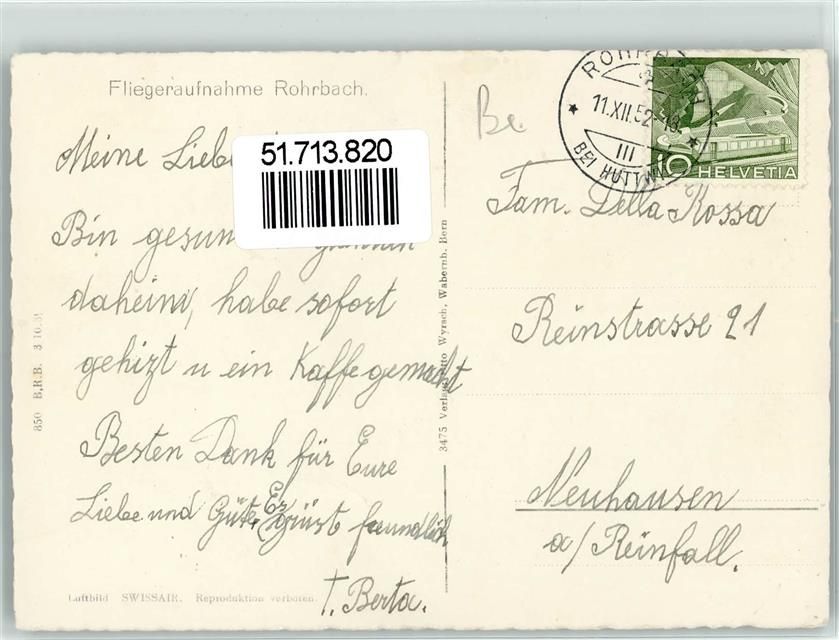 Fliegeraufnahme Rohrbach.
Meine Liebe
51.713.820
Bin gesun
daheim, habe sofort
gehizt u ein Kaffe gemacht
Besten Dank für Eure
Liebe und Güte, Es grüsst freundlich
T. Berta.
Luftbild SWISSAIR. Reproduktion verboten.
850 B.R.B. 3.10.31
3475 Verlag Otto Wyrsch, Wabernb. Bern
Be.
ROHRBACH
11.XII.52-18
III
BEI HUTTWIL
10 HELVETIA
Fam. Della Rossa
Reinstrasse 21
Neuhausen
a/Reinfall.